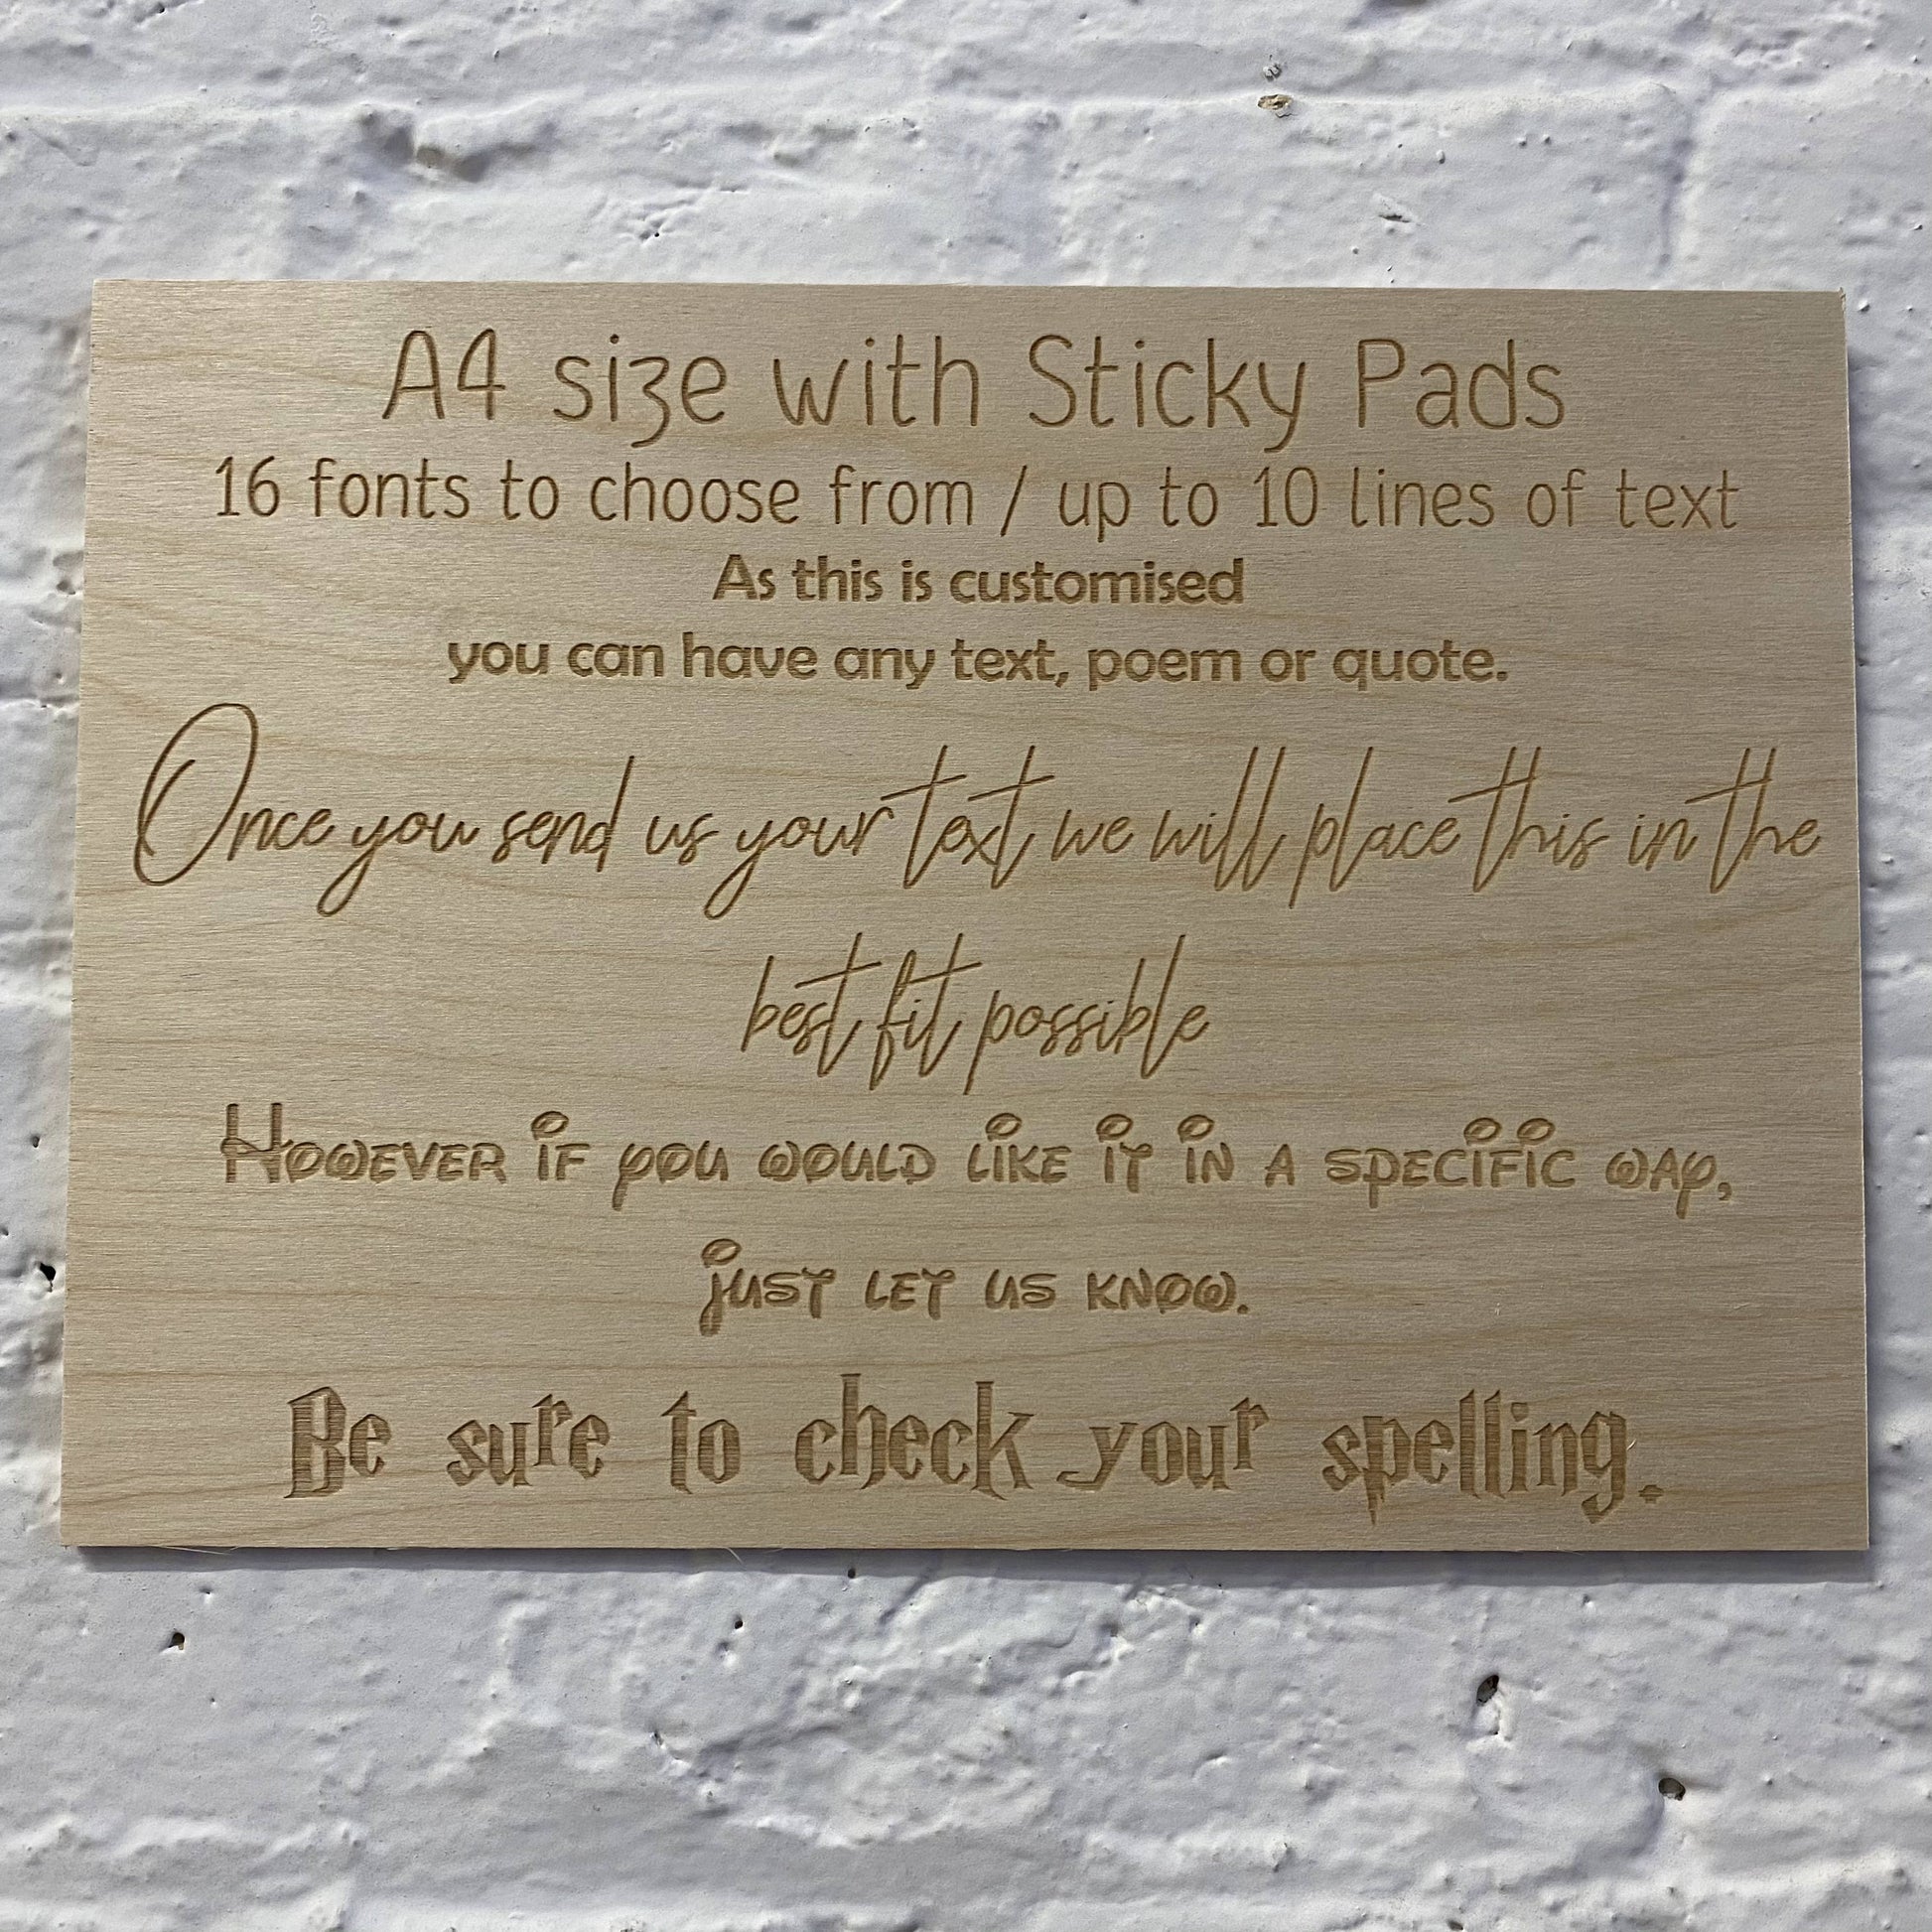 A4 size with Sticky Pads
16 fonts to choose from / up to 10 lines of text
As this is customised
you can have any text, poem or quote.
Once you send us your text we will place this in the
best fit possible
However if you would like it in a specific way,
just let us know.
Be sure to check your spelling.